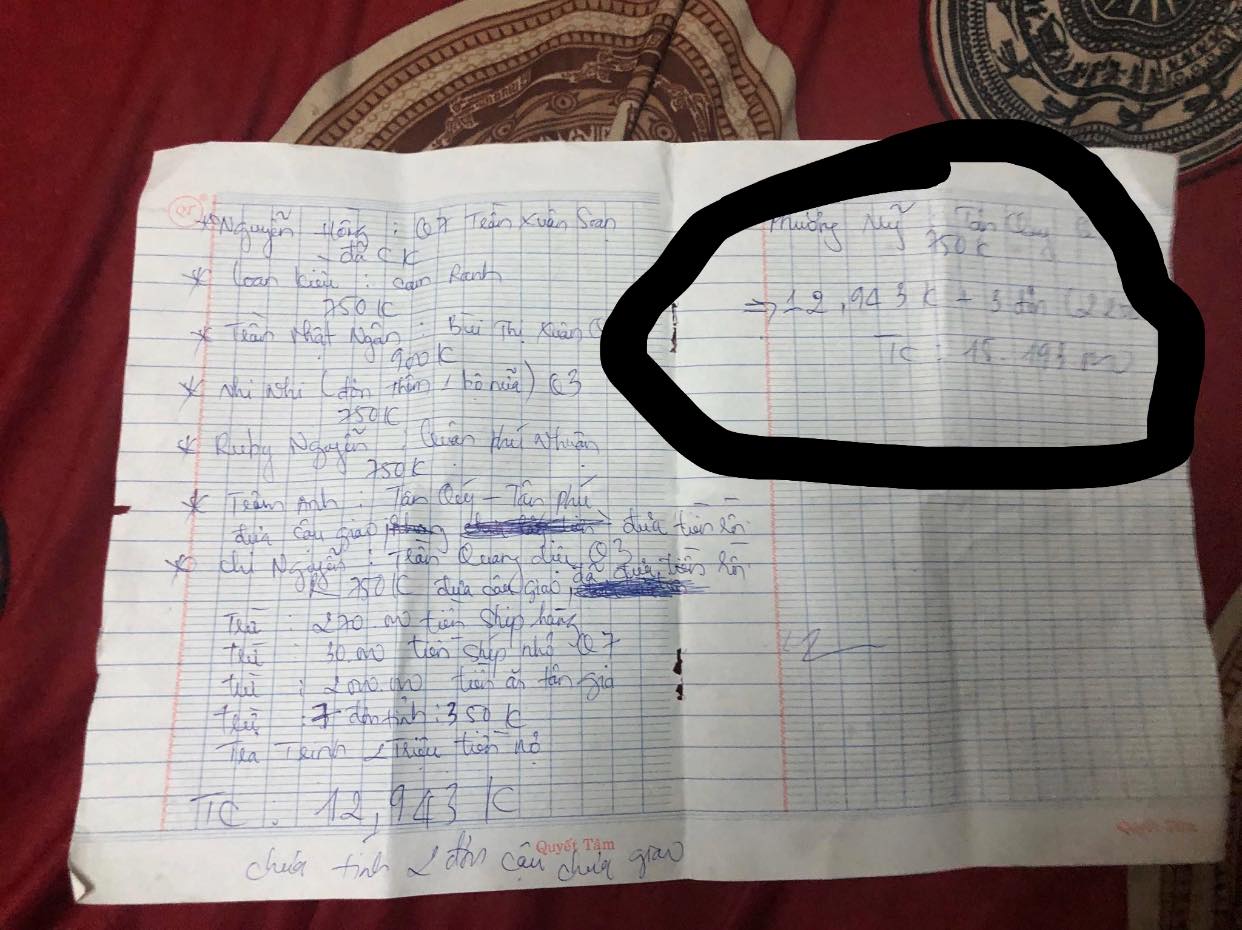 * Nguyễn Hồng : Q7 Trần Xuân Soạn
- đã CK
* Loan Kiều : Cam Ranh
750K
* Trần Nhật Ngân : Bùi Thị Xuân Q
900K
* Nhi Nhi (đơn thêm 1 bộ nữa) Q3
750K
* Ruby Nguyễn : Quận Phú Nhuận
750K
* Trâm Anh : Tân Quý - Tân Phú
đưa cậu giao đưa tiền rồi
* Chị Nguyễn : Trần Quang Diệu Q3
750K đưa cậu giao, đã đưa tiền rồi
Trừ : 270.000 tiền ship hàng
Trừ : 30.000 tiền ship nhỏ Q7
Trừ : 2000.000 tiền ăn tân gia
Trừ : 7 đơn tỉnh : 350K
Trả Trinh 2 Triệu tiền nợ
TC : 12,943 K
chưa tính 2 đơn cậu chưa giao
Quyết Tâm
Phương Mỹ : Tân
750K
=> 12,943 K + 3 đơn (225
TC : 15.193.000
Quyết Tâm